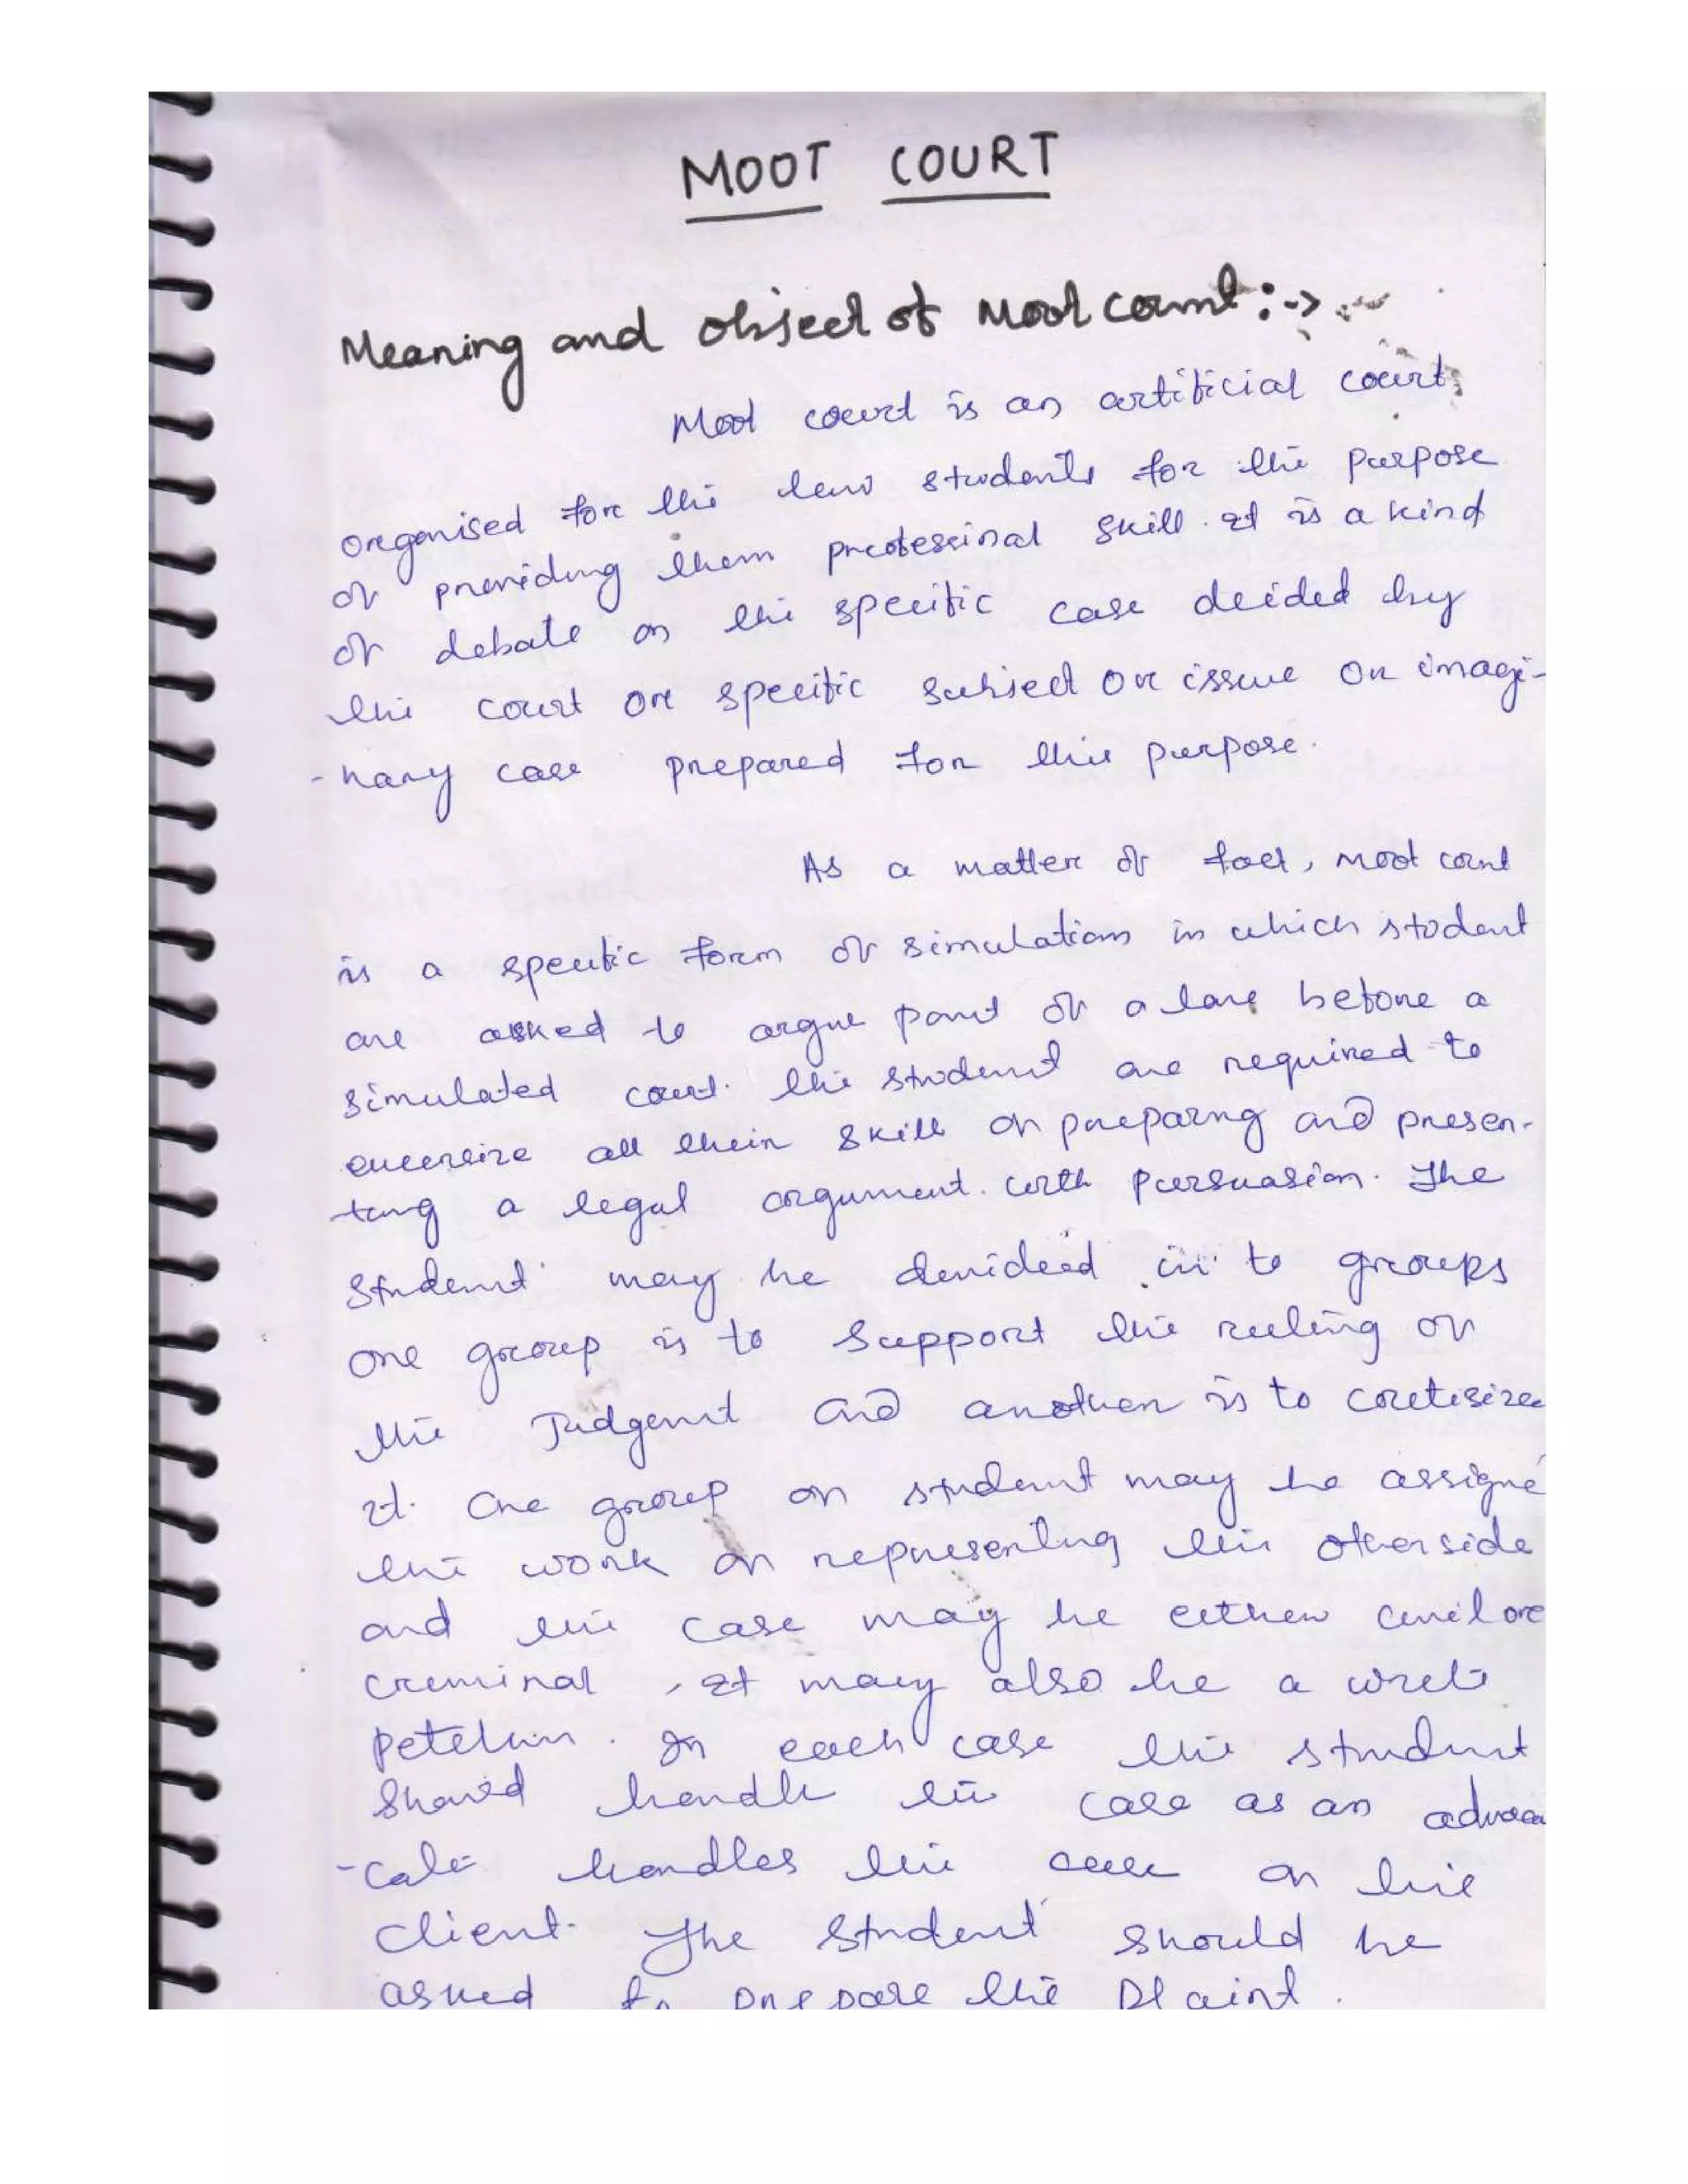 MOOT COURT
Meaning and object of Moot court :->
Moot court is an artificial court,
organised for the law students for the purpose
of providing them professinal skill. It is a kind
of debate on the specific case decided by
the court or specific subject or issue or imagi-
-nary case prepared for this purpose.
As a matter of fact, moot court
is a specific form of simulation in which student
are asked to argue point of a law before a
simulated court. the student are required to
excersize all their skill of preparing and presen-
ting a legal argument. with persuasion. The
student may be devided in to groups
one group is to support the ruling of
the Judgement and another is to cretisize
it. One group of student may be assigne
the work of representing the other side
and the case may be either civil or
criminal, It may also be a writ
petetion. In each case the student
should handle the case as an advoca
-cate handles the case of his
client. The student should be
asked to prepare the plaint.